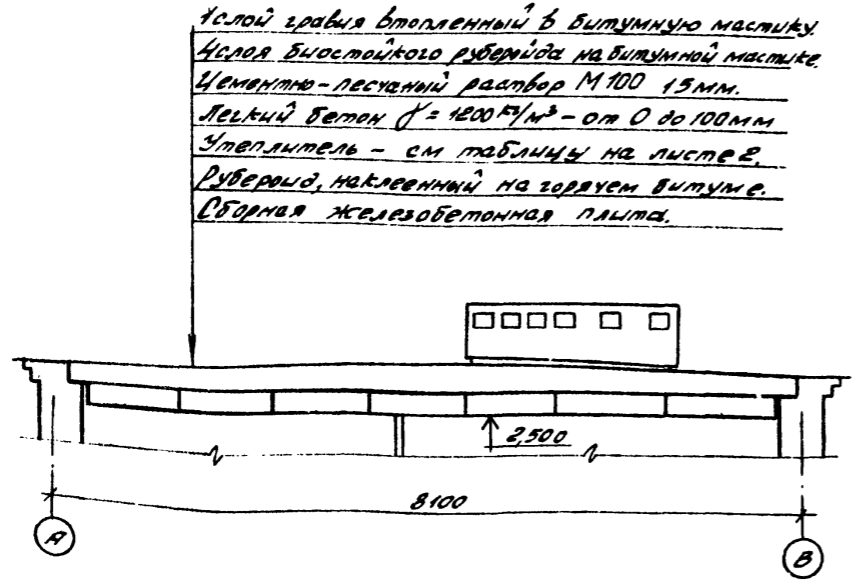 1слой гравия втопленный в битумную мастику.
4слоя биостойкого рубероида на битумной мастике.
Цементно-песчаный раствор М100 15мм.
Легкий бетон γ = 1200 кг/м³ - от 0 до 100мм
Утеплитель - см таблицы на листе 2.
Рубероид, наклеенный на горячем битуме.
Сборная железобетонная плита.
2,500
8100
А
В